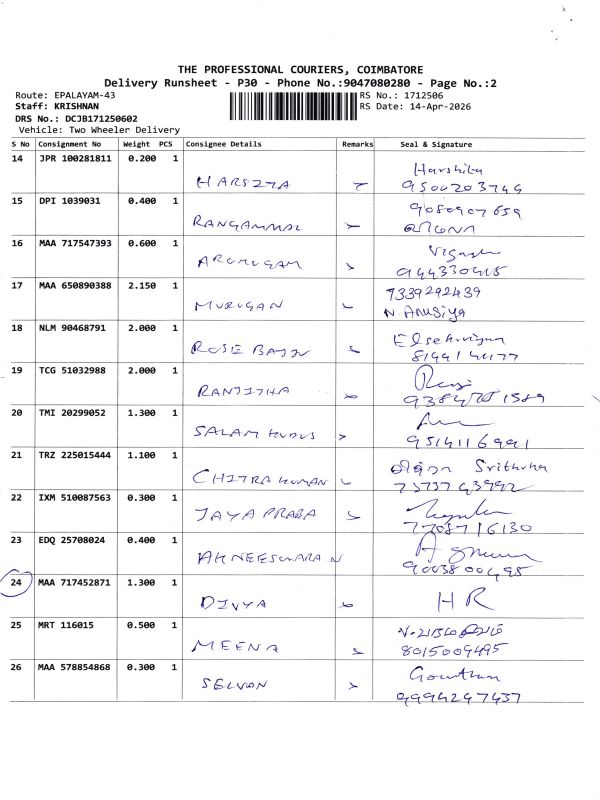 THE PROFESSIONAL COURIERS, COIMBATORE
Delivery Runsheet - P30 - Phone No.:9047080280 - Page No.:2
Route: EPALAYAM-43 RS No.: 1712506
Staff: KRISHNAN RS Date: 14-Apr-2026
DRS No.: DCJB171250602
Vehicle: Two Wheeler Delivery
S No Consignment No Weight PCS Consignee Details Remarks Seal & Signature
14 JPR 100281811 0.200 1 Harshita
9500203744
15 DPI 1039031 0.400 1 9080907659
RANGAMMAL
16 MAA 717547393 0.600 1
ARUMUGAM 944330415
17 MAA 650890388 2.150 1 7339292439
MURUGAN N Anusiya
18 NLM 90468791 2.000 1
ROSE 8144144177
19 TCG 51032988 2.000 1
RANJITHA
20 TMI 20299052 1.300 1
SALAM KUDUS 9514116991
21 TRZ 225015444 1.100 1 Srithuha
CHITRA KUMAN 7373743992
22 IXM 510087563 0.300 1
JAYA PRABA 7708716130
23 EDQ 25708024 0.400 1
AHNEESWARAN 9003800495
24 MAA 717452871 1.300 1 HR
DIVYA
25 MRT 116015 0.500 1
MEENA 8015009495
26 MAA 578854868 0.300 1 Gowtham
SELVAN 9994247437